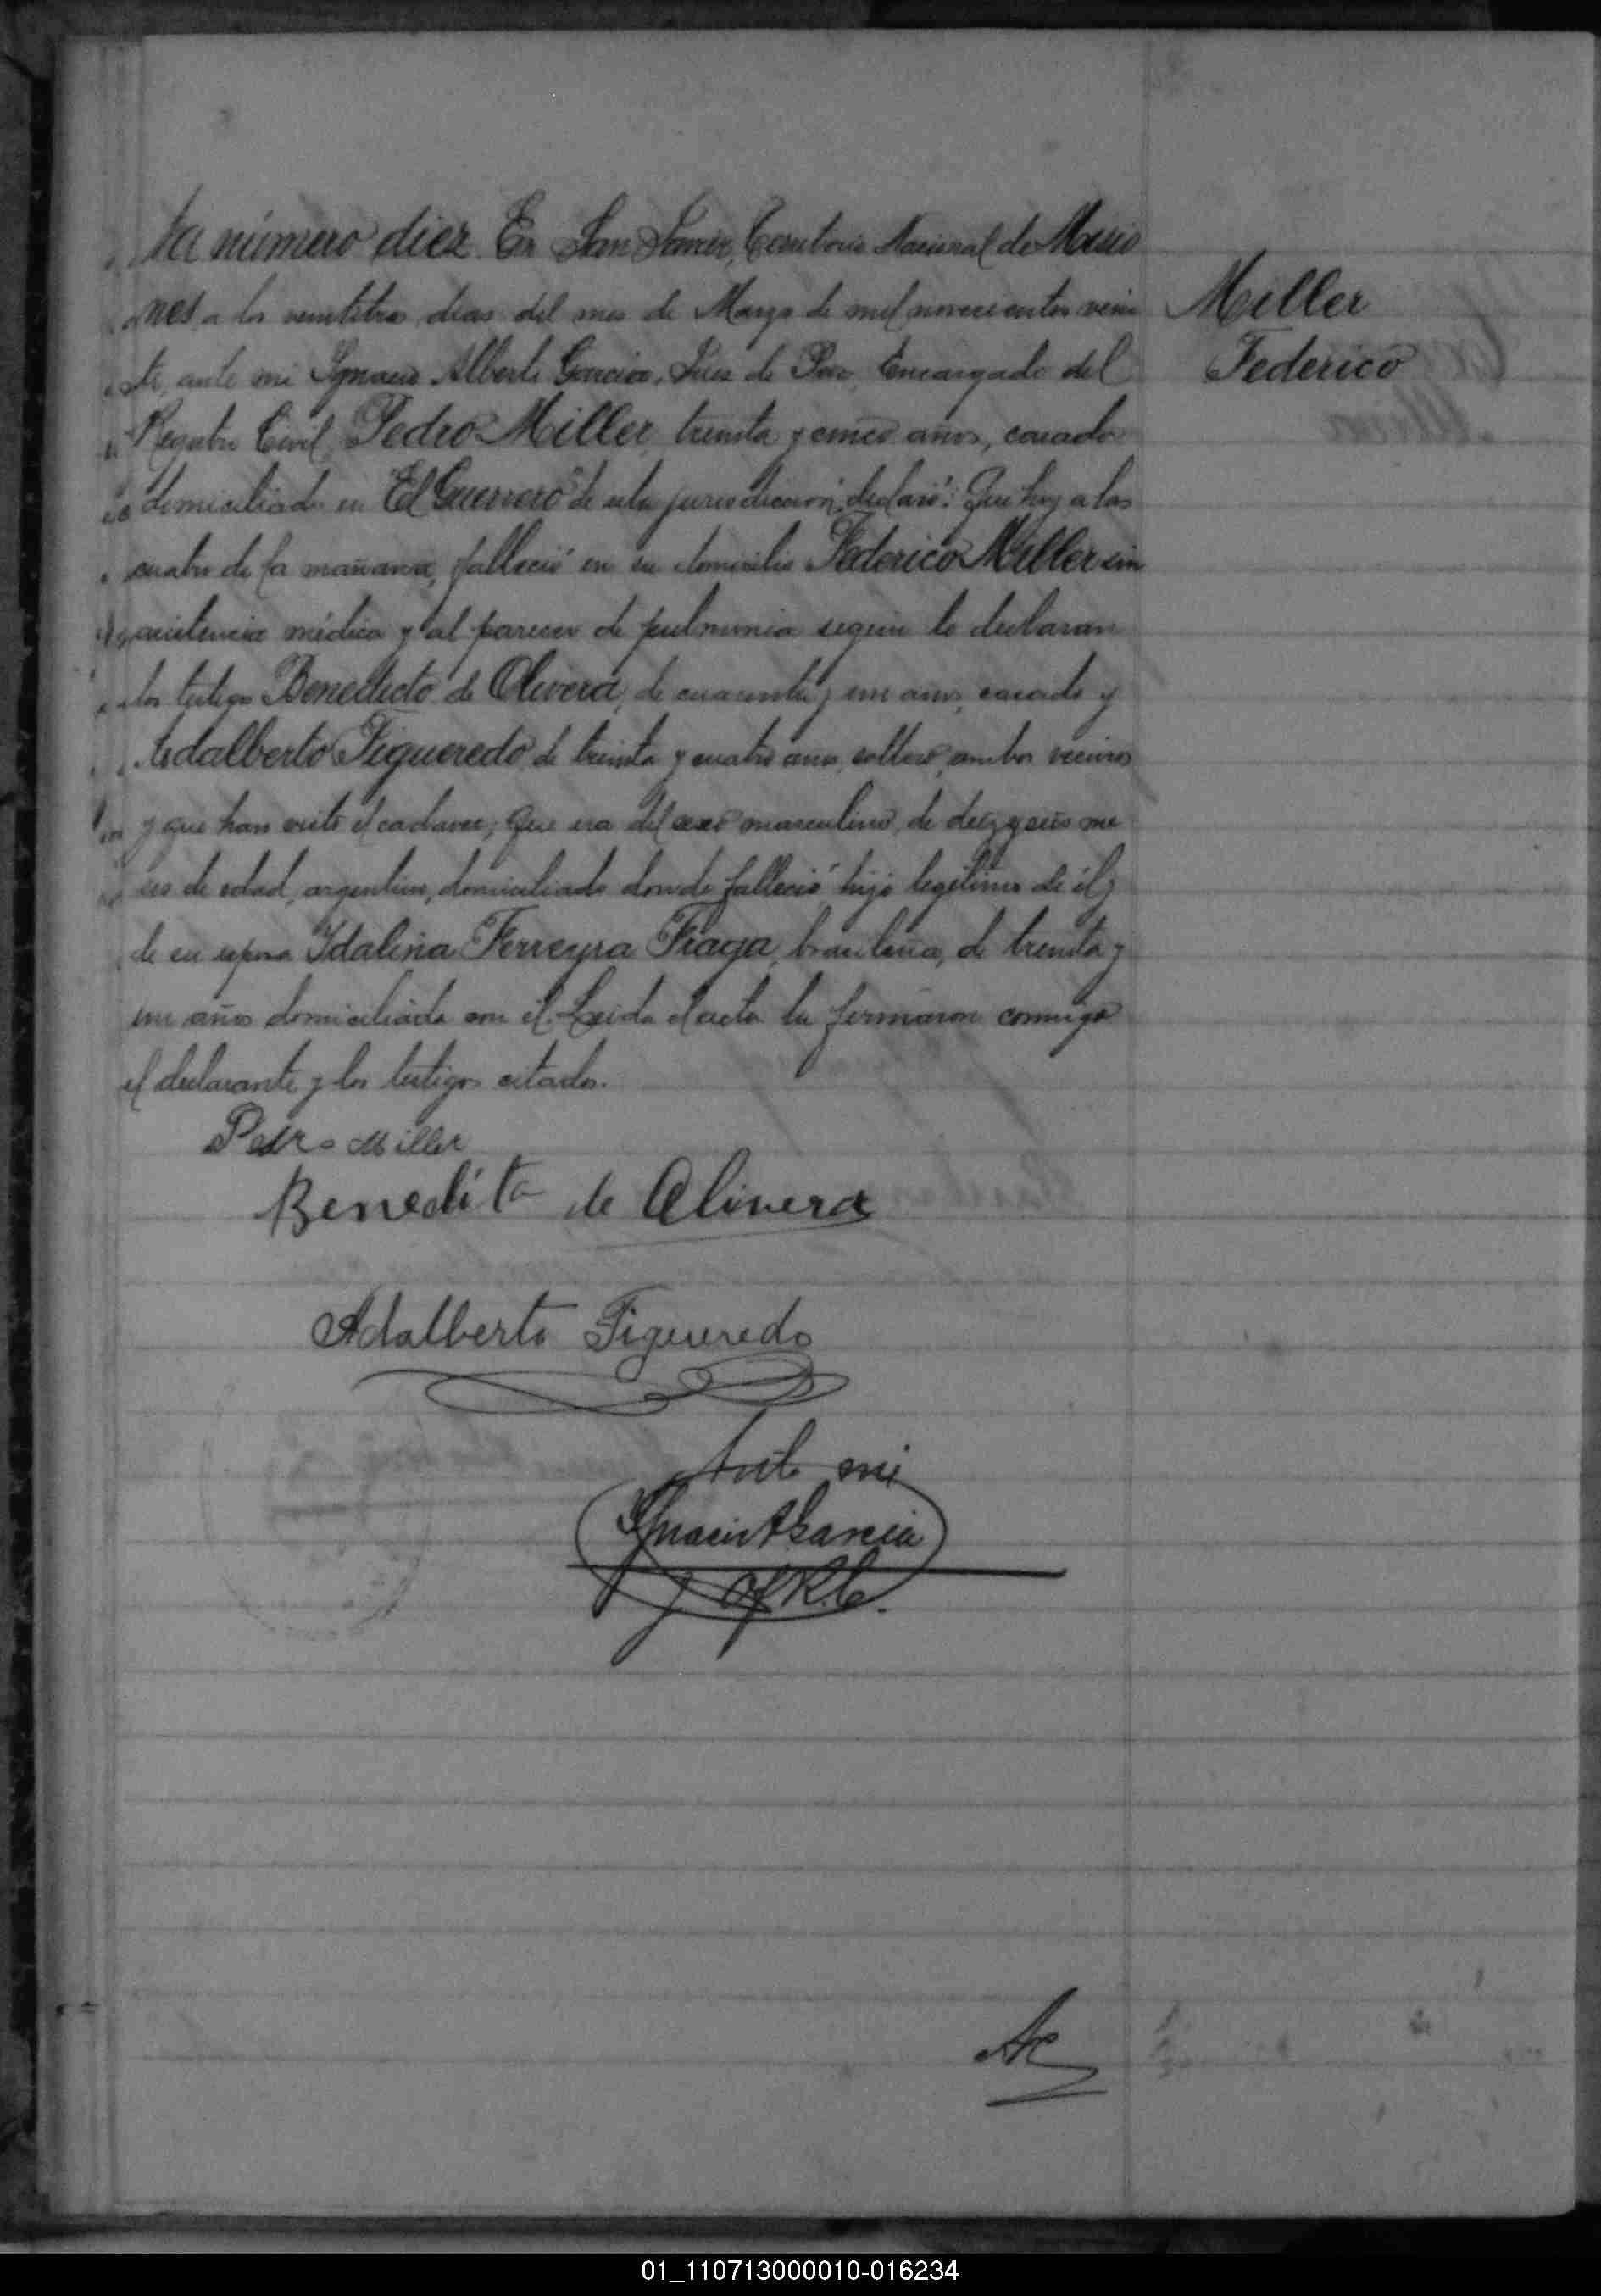 ta número diez. En San Javier, Territorio Nacional de Misio
nes a los veintitres dias del mes de Marzo de mil novecientos vein
te, ante mi Ignacio Alberto Garcia, Juez de Paz, Encargado del
Registro Civil, Pedro Miller, treinta y cinco años, casado
domiciliado en "El Guerrero" de esta jurisdiccion, declaró: Que hoy a las
cuatro de la mañana, falleció en su domicilio Federico Miller sin
asistencia médica y al parecer de pulmonia segun lo declaran
los testigos Benedicto de Olivera, de cuarenta y un años, casado y
Adalberto Figueredo, de treinta y cuatro años, soltero, ambos vecinos
y que han visto el cadaver; Que era del sexo masculino, de diez y seis me
ses de edad, argentino, domiciliado donde falleció hijo legitimo de él y
de su esposa Idalina Ferreyra Fraga, brasileña, de treinta y
un años domiciliada con él. Leida el acta la firmaron conmigo
el declarante y los testigos citados.
Miller
Federico
Pedro Miller
Benedito de Olivera
Adalberto Figueredo
Ante mi
Ignacio A Garcia
Of R.C.
01_110713000010-016234